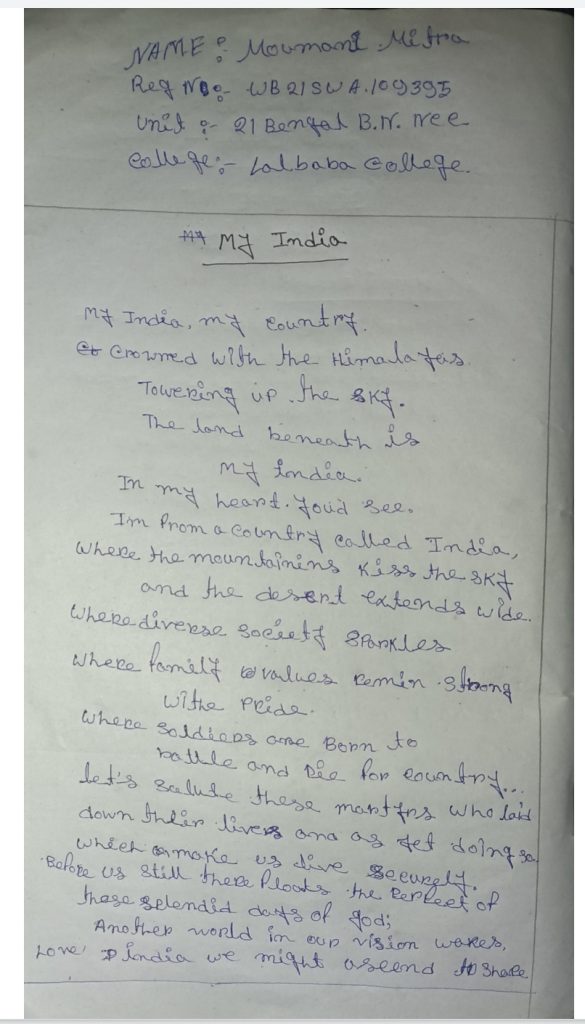 NAME: Moumani Mitra
Reg No:- WB21SWA.109395
Unit :- 21 Bengal B.N. Ncc
College:- Lalbaba College.
My India
My India, my country.
Crowned with the Himalayas.
Towering up the sky.
The land beneath is
my india.
In my heart. you'd see.
Im From a country called India,
Where the mountainins kiss the sky
and the desert extends wide.
Where diverse society sparkles
Where family values remin strong
withe pride.
Where soldiers are Born to
battle and Die for country...
let's salute these martyrs who laid
down their livers and as yet doing so
which make us live securely.
Before us still there floats the perfect of
these splendid days of god;
Another world in our vision wakes,
Love India we might ascend to share